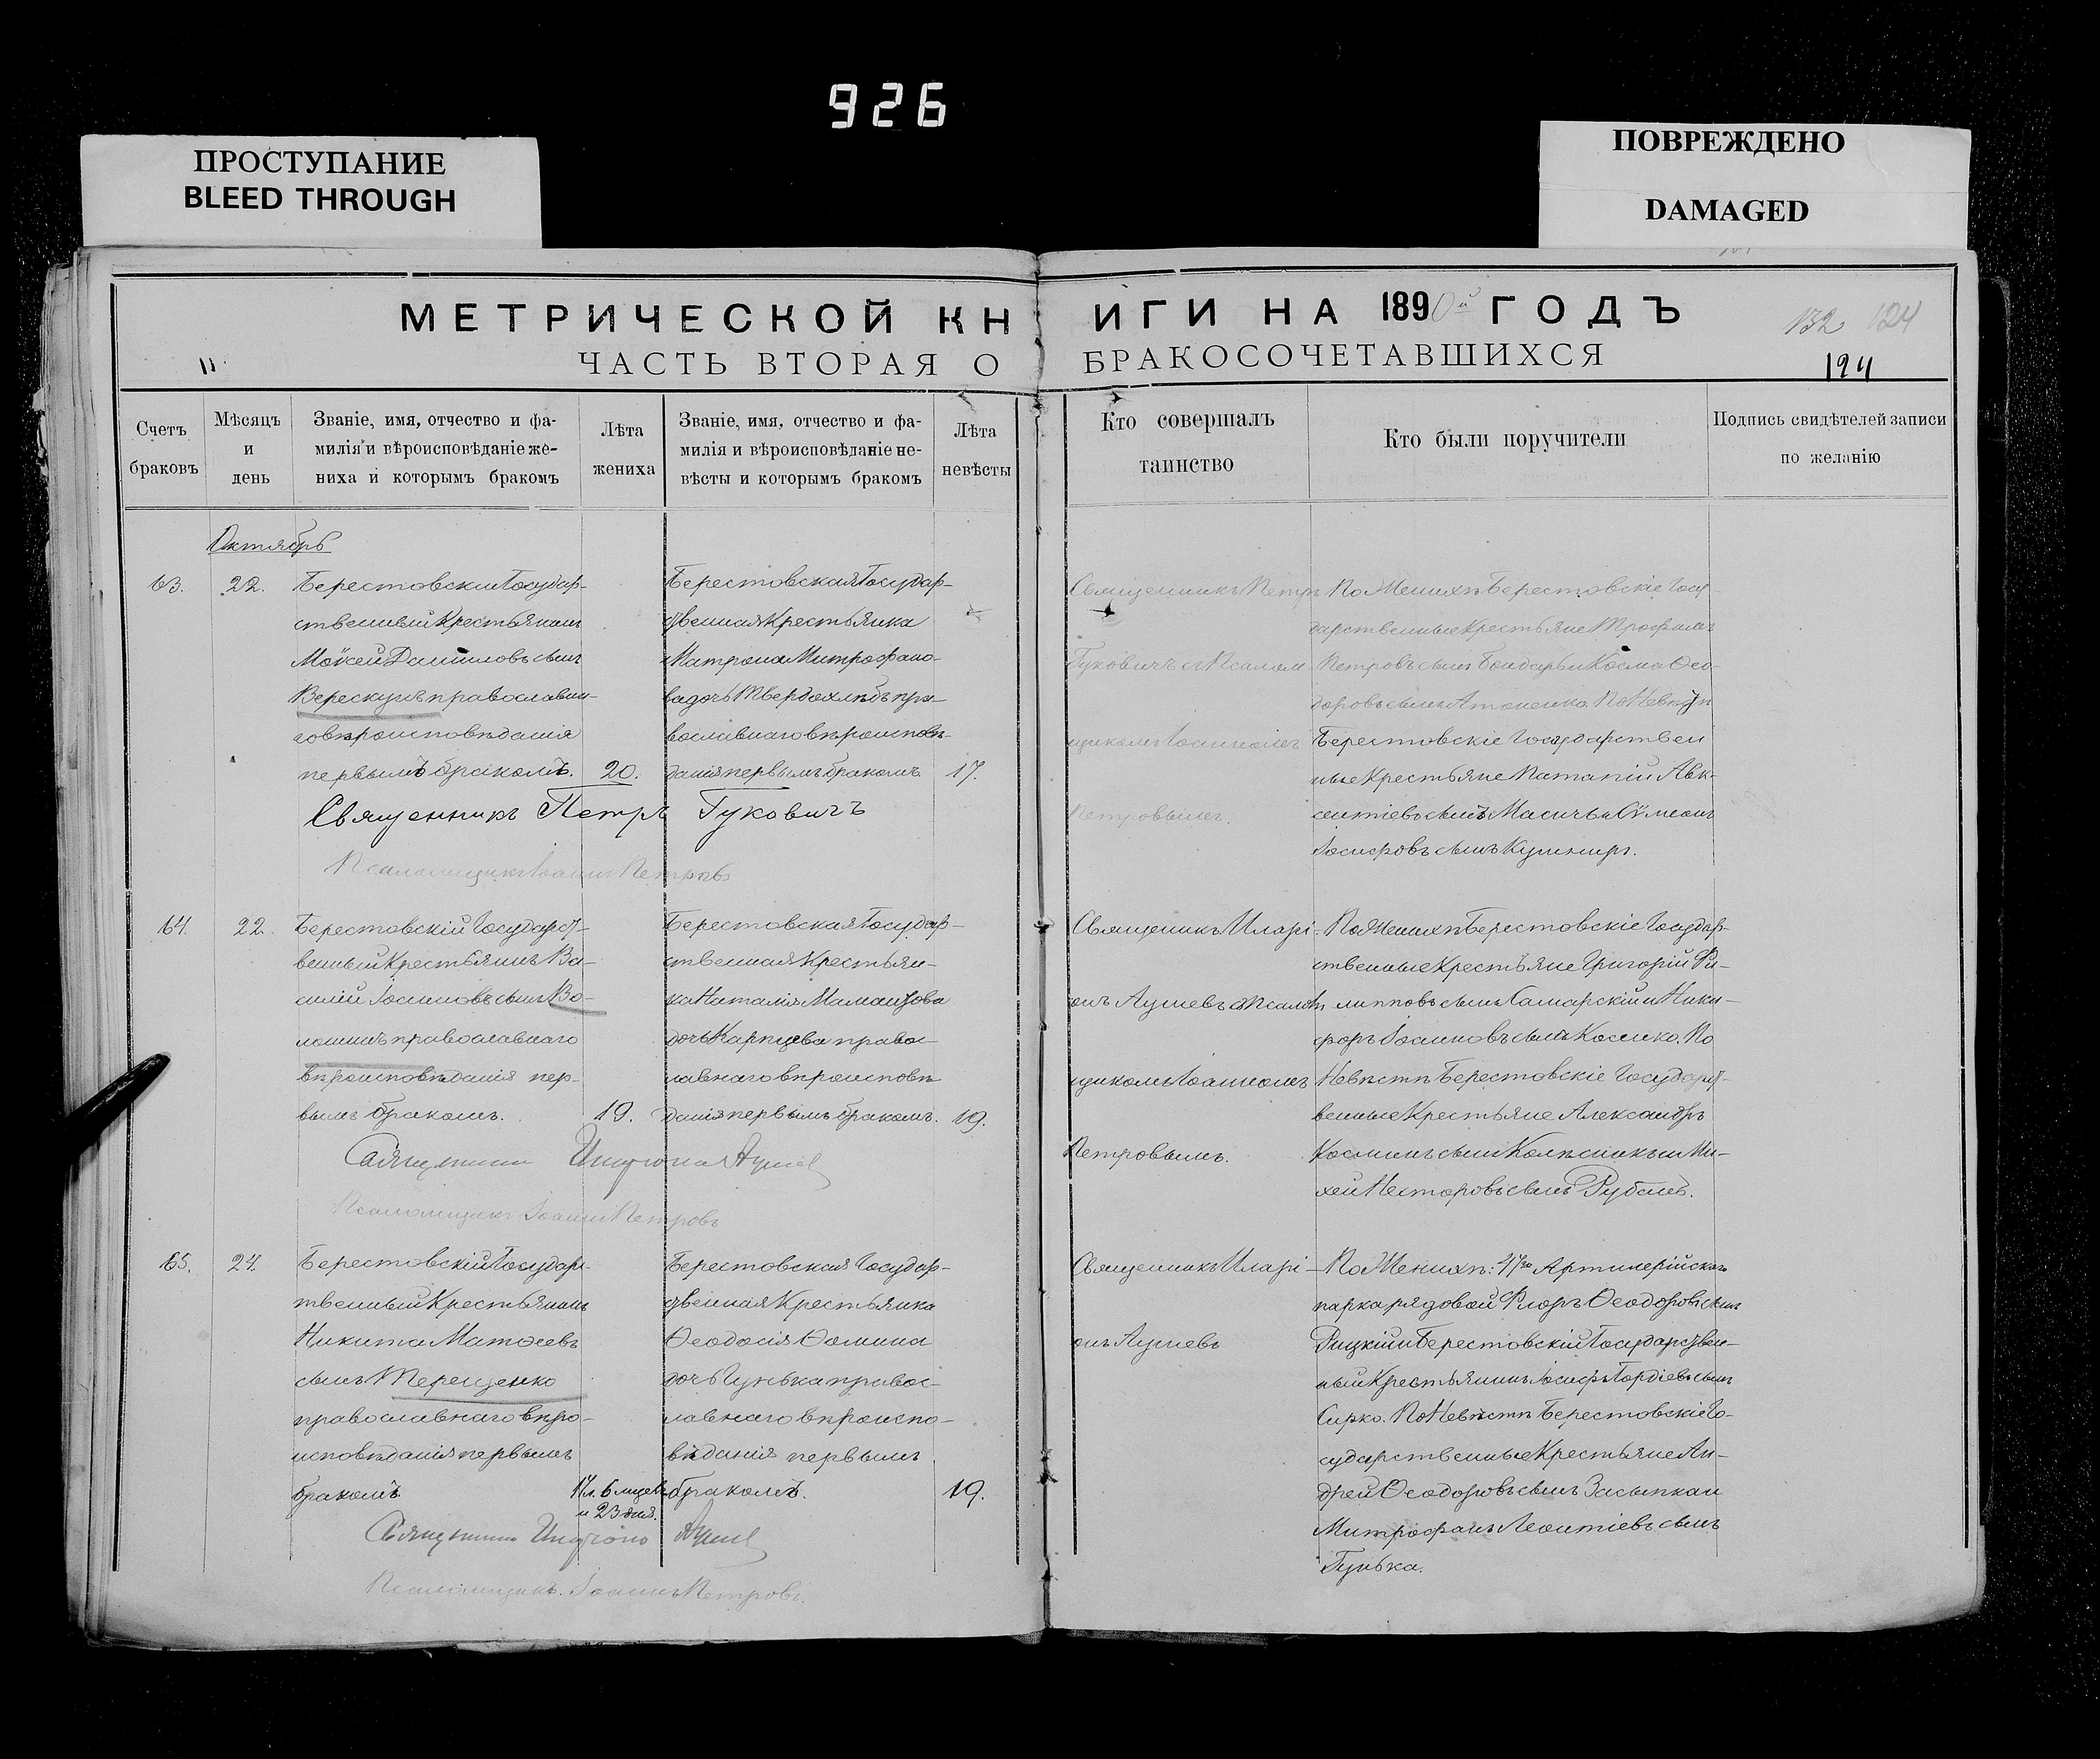 926
ПРОСТУПАНИЕ
BLEED THROUGH
ПОВРЕЖДЕНО
DAMAGED
МЕТРИЧЕСКОЙ КНИГИ НА 1890й ГОДЪ
132 124
ЧАСТЬ ВТОРАЯ О БРАКОСОЧЕТАВШИХСЯ
194
Счетъ
браковъ
Мѣсяцъ
и
день
Званіе, имя, отчество и фа-
милія и вѣроисповѣданіе же-
ниха и которымъ бракомъ
Лѣта
жениха
Званіе, имя, отчество и фа-
милія и вѣроисповѣданіе не-
вѣсты и которымъ бракомъ
Лѣта
невѣсты
Кто совершалъ
таинство
Кто были поручители
Подпись свидѣтелей записи
по желанію
Октябрь
63.
22.
Берестовскій Государ-
ственный Крестьянинъ
Моѵсей Даниловъ сынъ
Верескунъ православна-
го вѣроисповѣданія
первымъ бракомъ.
20.
Берестовская Государ-
ственная Крестьянка
Матрона Митрофано-
ва дочь Твердохлѣбъ пра-
вославнаго вѣроисповѣ-
данія первымъ бракомъ.
17.
Священникъ Петръ
Гуковичъ съ Псалом-
щикомъ Іоанномъ
Петровымъ.
По Женихѣ Берестовскіе Госу-
дарственные Крестьяне Трофимъ
Петровъ сынъ Бондарь и Косма Ѳео-
доровъ сынъ Атаненко. По Невѣстѣ
Берестовскіе Государствен
ные Крестьяне Патапій Авк-
сентіевъ сынъ Масичъ и Сѵмеонъ
Іосифовъ сынъ Кушниръ.
Священникъ Петръ Гуковичъ
Псаломщикъ Іоаннъ Петровъ
64.
22.
Берестовскій Государст-
венный Крестьянинъ Ва-
силій Іоанновъ сынъ Во-
лошинъ православнаго
вѣроисповѣданія пер-
вымъ бракомъ.
19.
Берестовская Государ-
ственная Крестьян-
ка Наталія
дочь Карпцева правос-
лавнаго вѣроисповѣ
данія первымъ бракомъ.
19.
Священникъ Иларі-
онъ Ауліевъ съ Псалом
щикомъ Іоанномъ
Петровымъ.
По Женихѣ Берестовскіе Государ-
ственные Крестьяне Григорій Фи-
липповъ сынъ Самарскій и Ники-
форъ Іоанновъ сынъ Косенко. По
Невѣстѣ Берестовскіе Государст-
венные Крестьяне Александръ
Косминъ сынъ Колѣсникъ и Ми-
хей Несторовъ сынъ Рубанъ.
Священникъ Иларіонъ Ауліевъ
Псаломщикъ Іоаннъ Петровъ
65.
24.
Берестовскій Государс
твенный Крестьянинъ
Никита Матѳеевъ
сынъ Терещенко
православнаго вѣро-
исповѣданія первымъ
бракомъ.
17 л. 6 мцевъ
и 23 дня.
Берестовская Государ-
ственная Крестьянка
Ѳеодосія Ѳомина
дочь Гунька правос-
лавнаго вѣроиспо-
вѣданія первымъ
бракомъ.
19.
Священникъ Иларі-
онъ Ауліевъ
По Женихѣ: Артилерійскаго
парка рядовой Флоръ Ѳеодоровъ сынъ
Рицкій и Берестовскій Государствен-
ный Крестьянинъ Іосифъ Гордіевъ сынъ
Сирко. По Невѣстѣ Берестовскіе Го-
сударственные Крестьяне Ан-
дрей Ѳеодоровъ сынъ Засыпка и
Митрофанъ Леонтіевъ сынъ
Гунька.
Священникъ Иларіонъ Ауліевъ
Псаломщикъ Іоаннъ Петровъ.